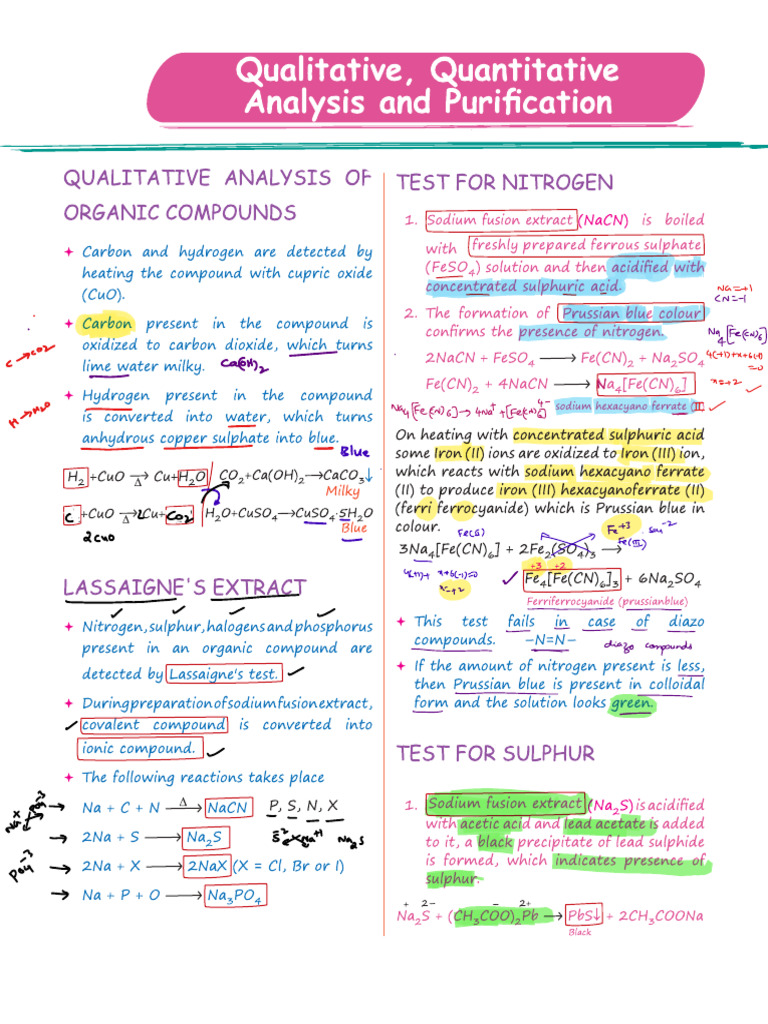 Qualitative, Quantitative
Analysis and Purification
QUALITATIVE ANALYSIS OF
ORGANIC COMPOUNDS
Carbon and hydrogen are detected by
heating the compound with cupric oxide
(CuO).
Carbon present in the compound is
oxidized to carbon dioxide, which turns
lime water milky. Ca(OH)2
C → CO2
Hydrogen present in the compound
is converted into water, which turns
anhydrous copper sulphate into blue.
H → H2O
Blue
H2 +CuO →Δ Cu+ H2O CO2+Ca(OH)2→CaCO3↓
Milky
C +CuO →Δ 2Cu+ CO2 H2O+CuSO4→CuSO4·5H2O
2CuO
Blue
LASSAIGNE'S EXTRACT
Nitrogen, sulphur, halogens and phosphorus
present in an organic compound are
detected by Lassaigne's test.
During preparation of sodium fusion extract,
covalent compound is converted into
ionic compound.
The following reactions takes place
Na + C + N →Δ NaCN P, S, N, X
2Na + S → Na2S
S-2 Na+1 Na2S
2Na + X → 2NaX (X = Cl, Br or I)
PO4-3
Na + P + O → Na3PO4
TEST FOR NITROGEN
1. Sodium fusion extract (NaCN) is boiled
with freshly prepared ferrous sulphate
(FeSO4) solution and then acidified with
concentrated sulphuric acid.
Na=+1
CN=-1
2. The formation of Prussian blue colour
confirms the presence of nitrogen.
Na4[Fe(CN)6]
2NaCN + FeSO4 → Fe(CN)2 + Na2SO4
4(+1)+x+6(-1)
=0
Fe(CN)2 + 4NaCN → Na4[Fe(CN)6]
x=+2
Na4[Fe(CN)6] → 4Na+ + [Fe(CN)6]4- sodium hexacyano ferrate (II)
On heating with concentrated sulphuric acid
some Iron (II) ions are oxidized to Iron (III) ion,
which reacts with sodium hexacyano ferrate
(II) to produce iron (III) hexacyanoferrate (II)
(ferri ferrocyanide) which is Prussian blue in
colour.
Fe(II)
Fe+3 SO4-2
Fe(III)
3Na4[Fe(CN)6] + 2Fe2(SO4)3 →
+3 +2
4(+1)+ x+6(-1)=0
x=+2
Fe4[Fe(CN)6]3 + 6Na2SO4
Ferriferrocyanide (prussianblue)
This test fails in case of diazo
compounds. –N=N– diazo compounds
If the amount of nitrogen present is less,
then Prussian blue is present in colloidal
form and the solution looks green.
TEST FOR SULPHUR
1. Sodium fusion extract (Na2S) is acidified
with acetic acid and lead acetate is added
to it, a black precipitate of lead sulphide
is formed, which indicates presence of
sulphur.
+ 2– – 2+
Na2S + (CH3COO)2Pb → PbS↓ + 2CH3COONa
Black